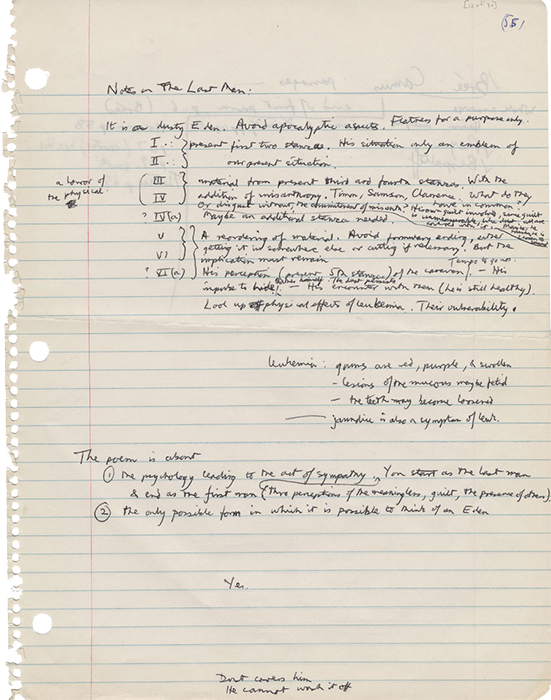 (55)
Notes on The Last Man:
It is a dusty Eden. Avoid apocalyptic aspects. Flatness for a purpose only.
I : present first two stanzas. His situation only an emblem of
II : our present situation.
a horror of the physical.
III material from present third and fourth stanzas. With the
IV addition of misanthropy. Timon, Samson, Clarence. What do they
have in common?
Or disgust without, the commitment of misanth? His own guilt involved, some guilt
is
? IV(a) Maybe an additional stanza needed
V A reordering of material. Avoid ending, either
VI getting it in somewhere else or cutting if necessary. But the
implication must remain
? VI(a) His perception (present 5th stanza) of the caravan. — His
impulse to hide. — His encounter with men (he is still healthy).
Look up physical effects of leukemia. Their vulnerability.
leukemia: gums are red, purple, & swollen
- lesions of the mucous may be fetid
- the teeth may become loosened
jaundice is also a symptom of leuk.
The poem is about
① the psychology leading to the act of sympathy. You start as the last man
& end as the first man (thro perceptions of the meaningless, guilt, the presence of others)
② the only possible form in which it is possible to think of an Eden
Yes.
Dust covers him
He cannot wash it off